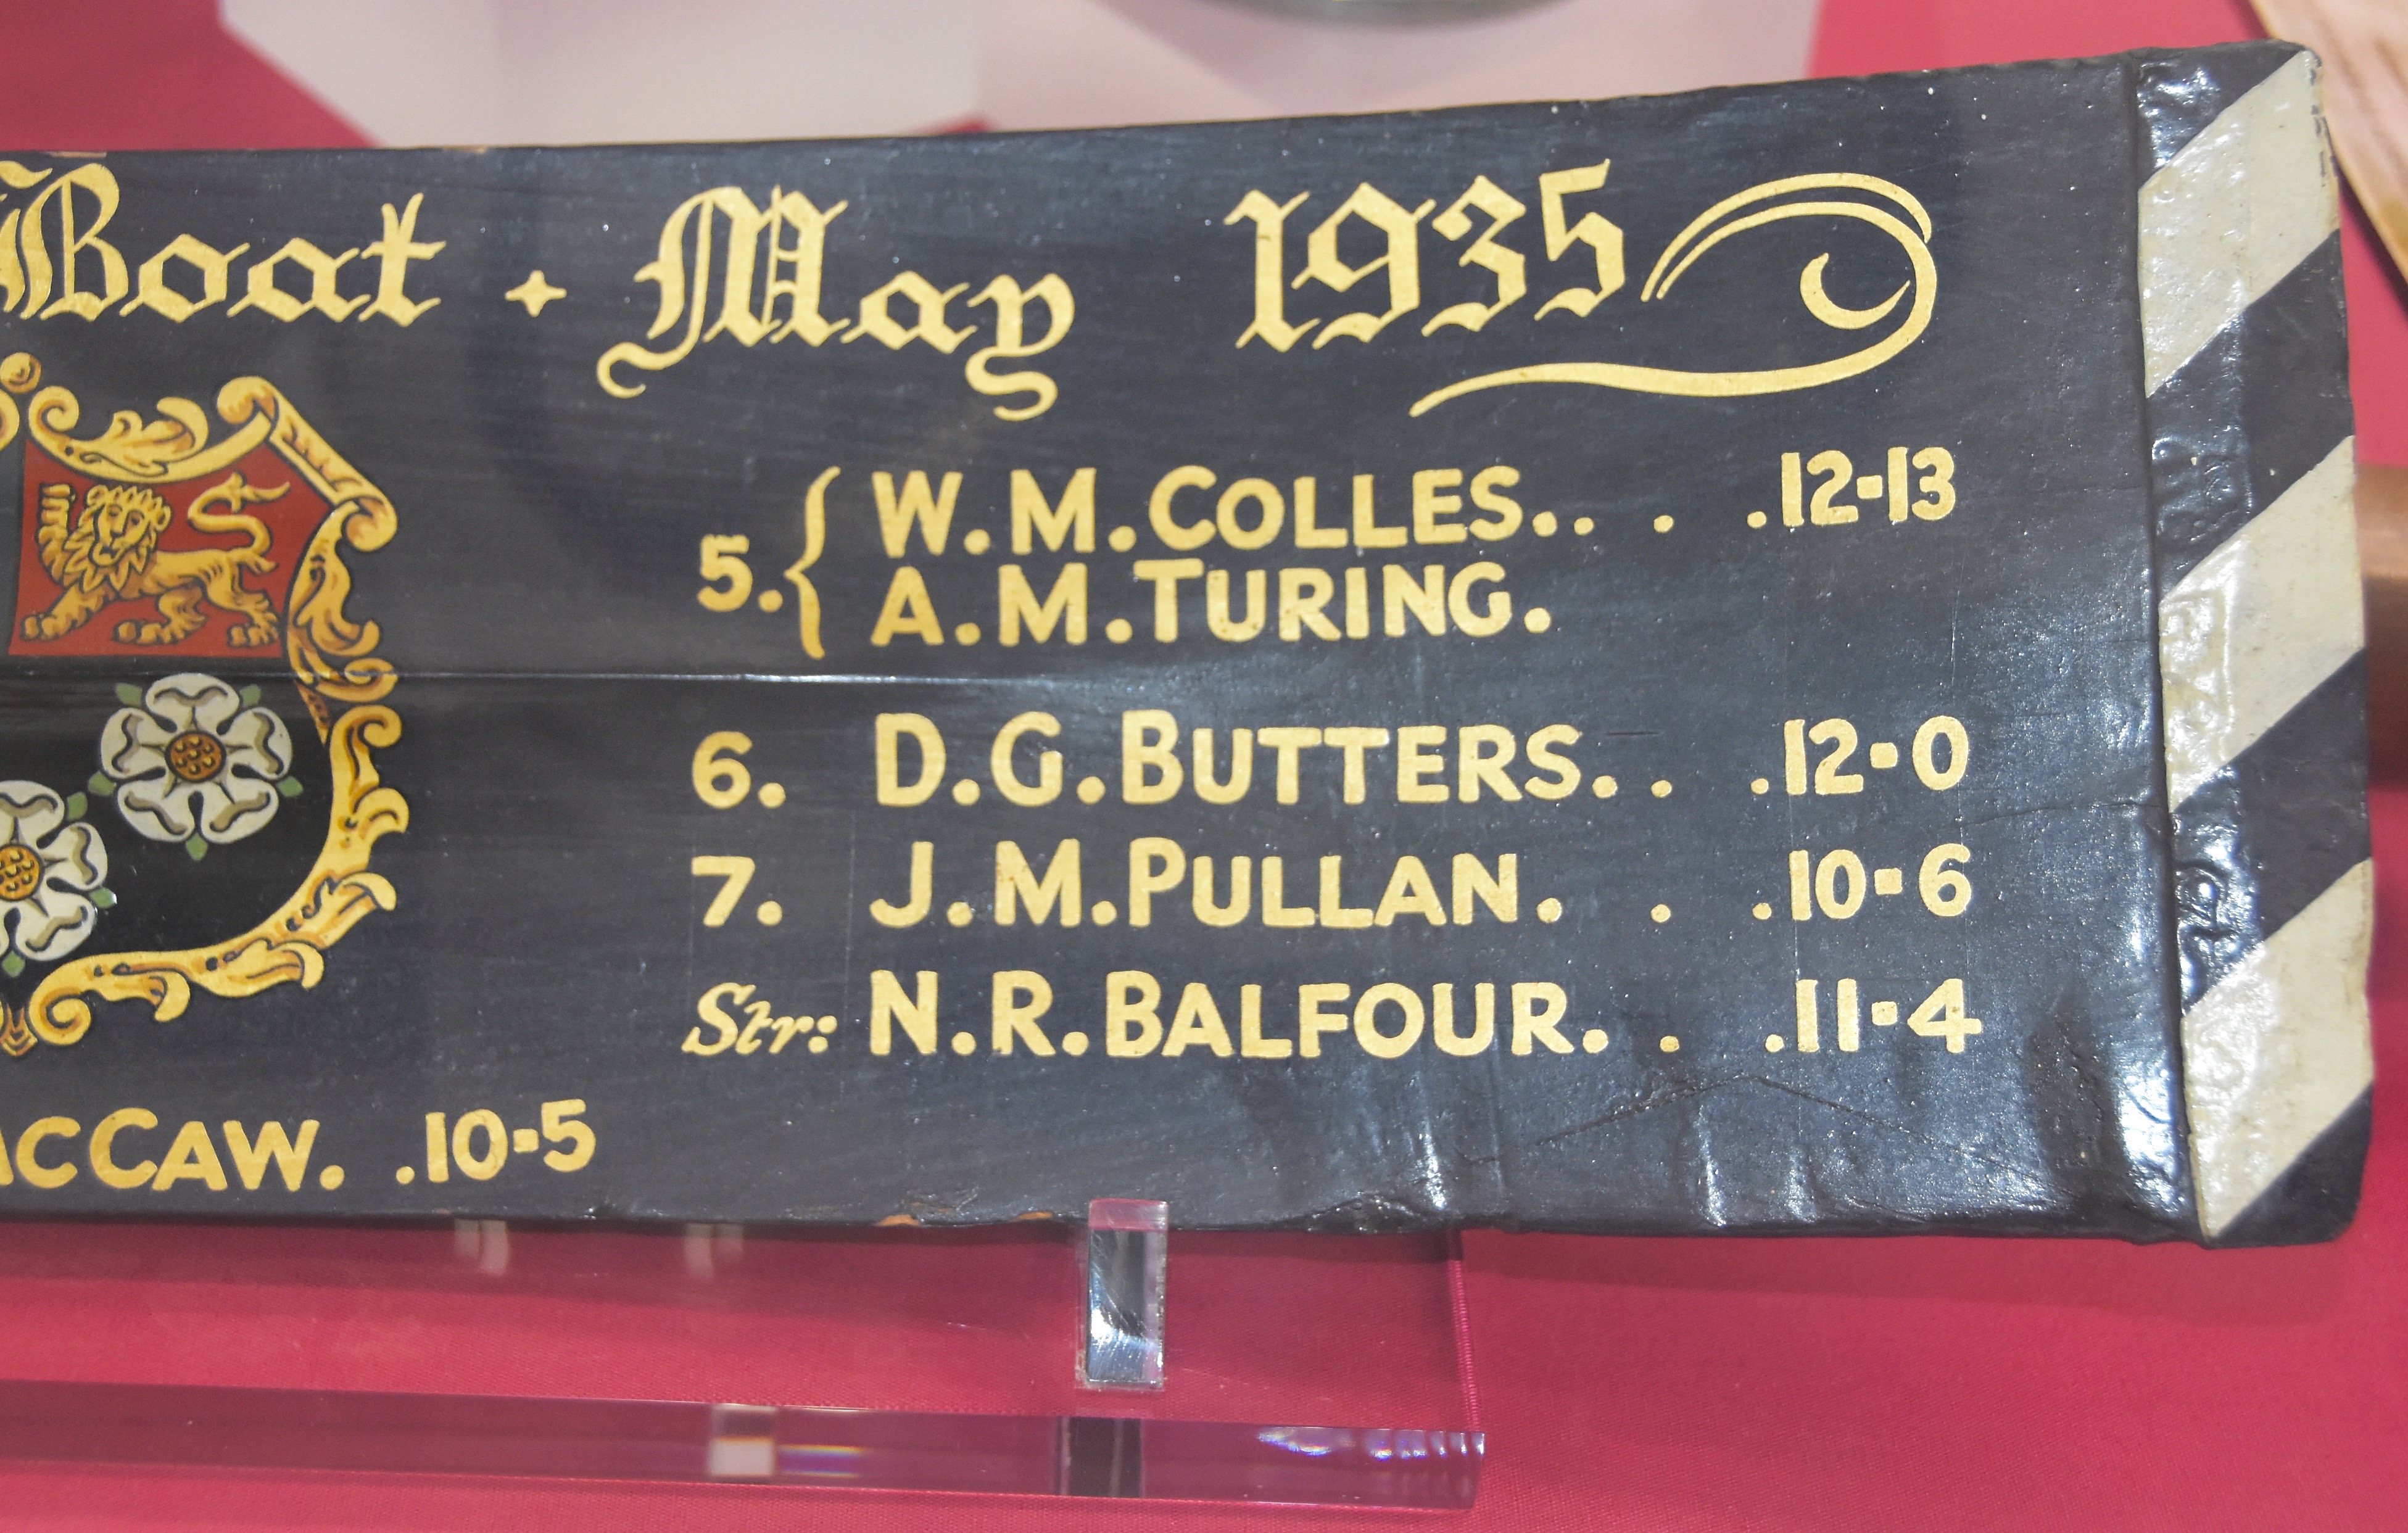 Boat + May 1935
5. { W. M. COLLES. . . . 12-13
A. M. TURING.
6. D. G. BUTTERS. . . 12-0
7. J. M. PULLAN. . . 10-6
Str: N. R. BALFOUR. . . 11-4
CCAW. . 10-5